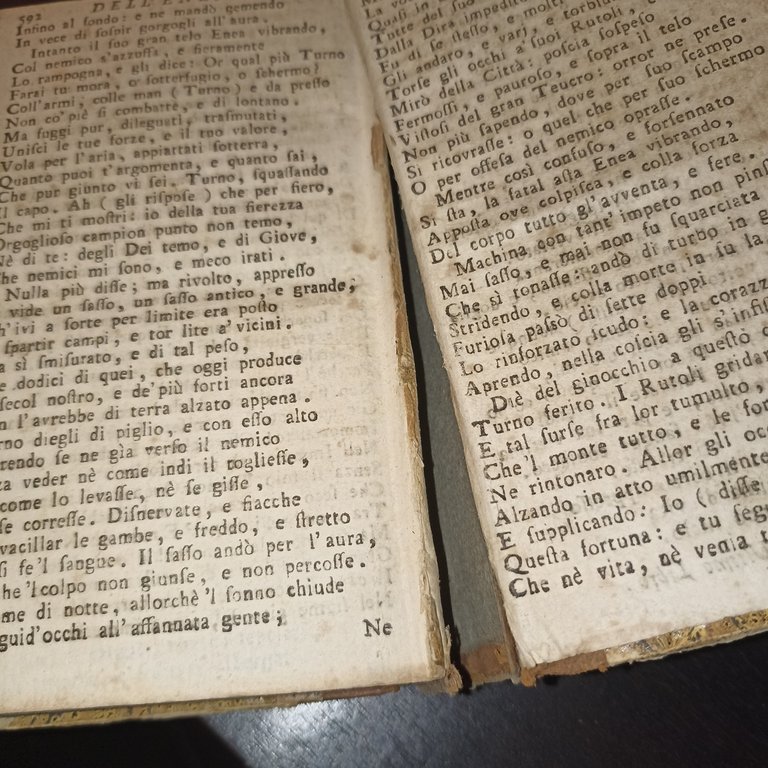 592 DELL'E
Infino al fondo: e ne mandò gemendo
In vece di sospir gorgogli all'aura.
Intanto il suo gran telo Enea vibrando,
Col nemico s'azzuffa, e fieramente
Lo rampogna, e gli dice: Or qual più Turno
Farai tu mora, o sotterfugio, o schermo?
Coll'armi, colle man (Turno) e da presso
Non co'piè si combatte, e di lontano.
Ma fuggi pur, dileguati, trasmutati,
Unisci le tue forze, e il tuo valore,
Vola per l'aria, appiattati sotterra,
Quanto puoi t'argomenta, e quanto sai,
Che pur giunto vi sei. Turno, squassando
Il capo. Ah (gli rispose) che per fiero,
Che mi ti mostri: io della tua fierezza
Orgoglioso campion punto non temo,
Nè di te: degli Dei temo, e di Giove,
Che nemici mi sono, e meco irati.
Nulla più disse; ma rivolto, appresso
vide un sasso, un sasso antico, e grande,
h'ivi a sorte per limite era posto
spartir campi, e tor lite a'vicini.
a sì smisurato, e di tal peso,
e dodici di quei, che oggi produce
secol nostro, e de'più forti ancora
n l'avrebbe di terra alzato appena.
rno diegli di piglio, e con esso alto
rendo se ne gìa verso il nemico
za veder nè come indi il togliesse,
come lo levasse, nè se gisse,
se corresse. Disnervate, e fiacche
vacillar le gambe, e freddo, e stretto
si fe'l sangue. Il sasso andò per l'aura,
he'lcolpo non giunse, e non percosse.
me di notte, allorchè'l sonno chiude
guid'occhi all'affannata gente;
Ne
La vo
Quasi in
Tutte del suo
Dalla Dira impedit
Fu di se stesso, e molti
Gli andaro, e varj, e torbid
Torse gli occhi a'suoi Rutoli, e
Mirò della Città: poscia sospeso
Fermossi, e pauroso, e sopra il telo
Vistosi del gran Teucro: orror ne prese.
Non più sapendo, dove per suo scampo
Si ricovrasse: o quel che per suo schermo
O per offesa del nemico oprasse.
Mentre così confuso, e forsennato
Si sta, la fatal asta Enea vibrando,
Apposta ove colpisca, e colla forza
Del corpo tutto gl'avventa, e fere.
Machina con tant'impeto non pins
Mai sasso, e mai non fu squarciata
Che sì tonasse: andò di turbo in g
Stridendo, e colla morte in su la
Furiosa passò di sette doppi
Lo rinforzato scudo: e la corazz
Aprendo, nella coscia gli s'infis
Diè del ginocchio a questo c
Turno ferito. I Rutoli gridar
E tal surse fra lor tumulto,
Che'l monte tutto, e le for
Ne rintonaro. Allor gli occ
Alzando in atto umilmente
E supplicando: Io (disse
Questa fortuna: e tu segu
Che nè vita, nè venia t